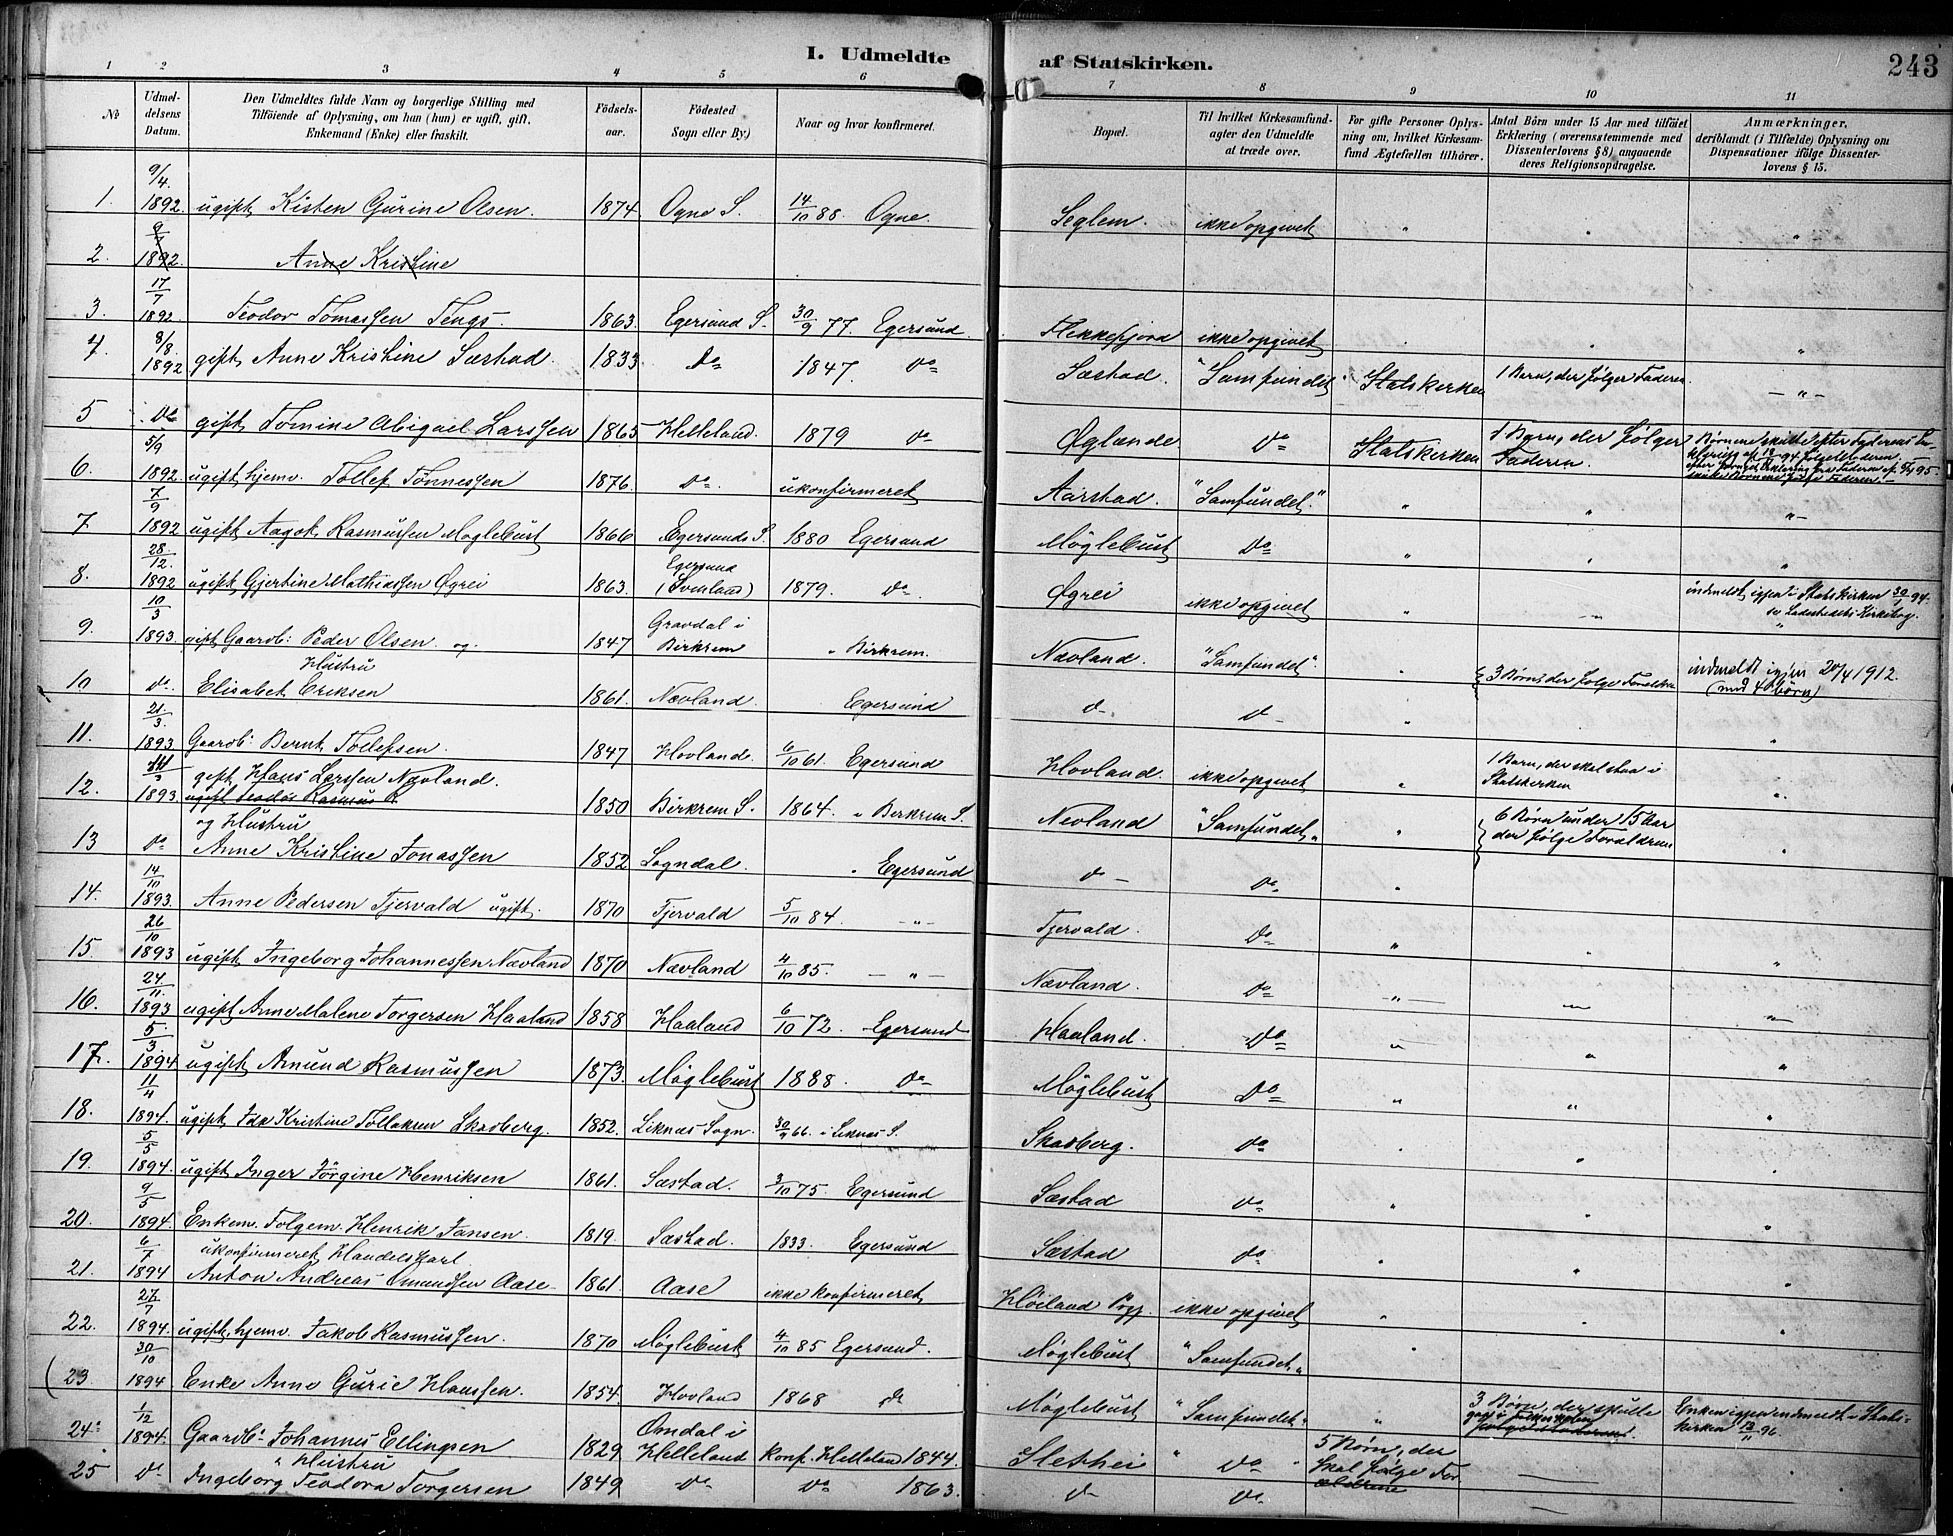 I. Udmeldte af Statskirken.
243
1 2 3 4 5 6 7 8 9 10 11
No
Udmel-
delsens
Datum.
Den Udmeldtes fulde Navn og borgerlige Stilling med
Tilföiende af Oplysning, om han (hun) er ugift, gift,
Enkemand (Enke) eller fraskilt.
Födsels-
aar.
Födested
Sogn eller By.)
Naar og hvor konfirmeret.
Bopæl.
Til hvilket Kirkesamfund-
agter den Udmeldte
at træde over.
For gifte Personer Oplys-
ning om, hvilket Kirkesam-
fund Ægtefællen tilhörer.
Antal Börn under 15 Aar med tilföiet
Erklæring (overensstemmende med
Dissenterlovens § 8) angaaende
deres Religionsopdragelse.
Anmærkninger,
deriblandt (i Tilfælde) Oplysning om
Dispensationer ifölge Dissenter-
lovens § 15.
1. 9/4 1892 ugift Kisten Gurine Olsen. 1874 Ogne S. 14/10 88. Ogne. Seglem. ikke opgivet " " "
2. 9/7 1892. Anne Kristine
3. 17/7 1892 Teodor Tomassen Tengs. 1863. Egersund S. 30/9 77. Egersund Flekkefjord ikke opgivet " " "
4. 8/8 1892 gift Anne Kristine Sæstad. 1833 do 1847. do Sæstad. "Samfundet" Statskirken 1 Barn, der følger Faderen. — " —
5 do gift Tomine Abigael Larssen 1865 Helleland. 1879 do Øglænde do Statskirken 1 Barn, der følger
Faderen.
6. 5/9 1892. ugift hjemv. Tollef Tønnessen 1876. do ukonfirmeret Aarstad. "Samfundet." " " "
7. 7/9 1892 ugift Aagot Rasmussen Møglebust 1866 Egersunds S. 1880 Egersund Møglebust do " " "
8. 28/12. 1892 ugift Gjertine Mathiassen Øgrei 1863. Egersund 1879. do Øgrei ikke opgivet " " indmeldt igjen i Statskirken 30/1 94.
se Ladestedets Kirkebog.
9. 10/3 1893. gift Gaardb: Peder Olsen og 1847 Gravdal i
Birkrem " Birkrem. Nævland. "Samfundet". " 3 Børn, der følge Forældre indmeldt igjen 20/4 1912.
(med 4 børn)
Hustru
10 do Elisabet Eriksen 1861. Nævland. Egersund d— d— "
11. 21/3. 1893 Gaardb: Bernt Tollefsen. 1847 Hovland. 6/10 61. Egersund Hovland. ikke opgivet " 1 Barn, der skal staa i
Statskirken "
gift Hans Larssen Nævland.
12. 1893. ugift Teodor Rasmus R. 1850 Birkrem S. 1864. " Birkrem S. Nevland "Samfundet" " 6 Børn under 15 Aar
der følge Forældrene
og Hustru
13 do Anne Kristine Jonassen 1852 Sogndal. " Egersund d— do "
14. 14/10 1893. Anne Pedersen Tjervald ugift. 1870 Tjervald 5/10 84. — " — Tjervald. do "
15. 26/10 1893 ugift Ingeborg Johannessen Nævland 1870 Nævland 4/10 85. — " — Nævland. do " "
16. 24/11. 1893 ugift Anne Malene Torgersen Haaland 1858 Haaland 6/10 72. Egersund Haaland. do " " "
17. 5/3. 1894 ugift Amund Rasmussen 1873. Møglebust 1888. do Møglebust do " " "
18. 11/4 1894. ugift Ida Kristine Tollaksen Skadberg. 1852. Liknes Sogn. 30/9 66. i Liknes S. Skadberg. do " " "
19. 5/5 1894. ugift Inger Jørgine Henriksen 1861. Sæstad. 3/10 75. Egersund Sæstad do " " "
20. 9/5 1894. Enkem. Folgem. Henrik Jansen. 1819. Sæstad. 1833. Egersund Sæstad do " " "
ukonfirmeret Handelskarl
21. 6/7 1894 Anton Andreas Omundsen Aase 1861. Aase ikke konfirmeret Høiland Pgj. ikke opgivet " " "
22. 27/7 1894. ugift hjemv. Jakob Rasmussen. 1870 Møglebust 4/10 85 Egersund. Møglebust "Samfundet" "
23 30/10 1894 Enke Anne Gurie Hanssen. 1854. Hovland 1868 do Møglebust "Samfundet" " 3 Børn, der skulle
Enken igjen indmeldt i Stats-
kirken 96.
24. 1/12 1894. Gaardb: Johannes Ellingsen 1829 Omdal i
Helleland Konf. Helleland 1844. Slethei " do " 5 Børn, der
skal følge For-
ældrene
" Hustru
25 do Ingeborg Teodora Torgersen 1849 do do 1863. d— do